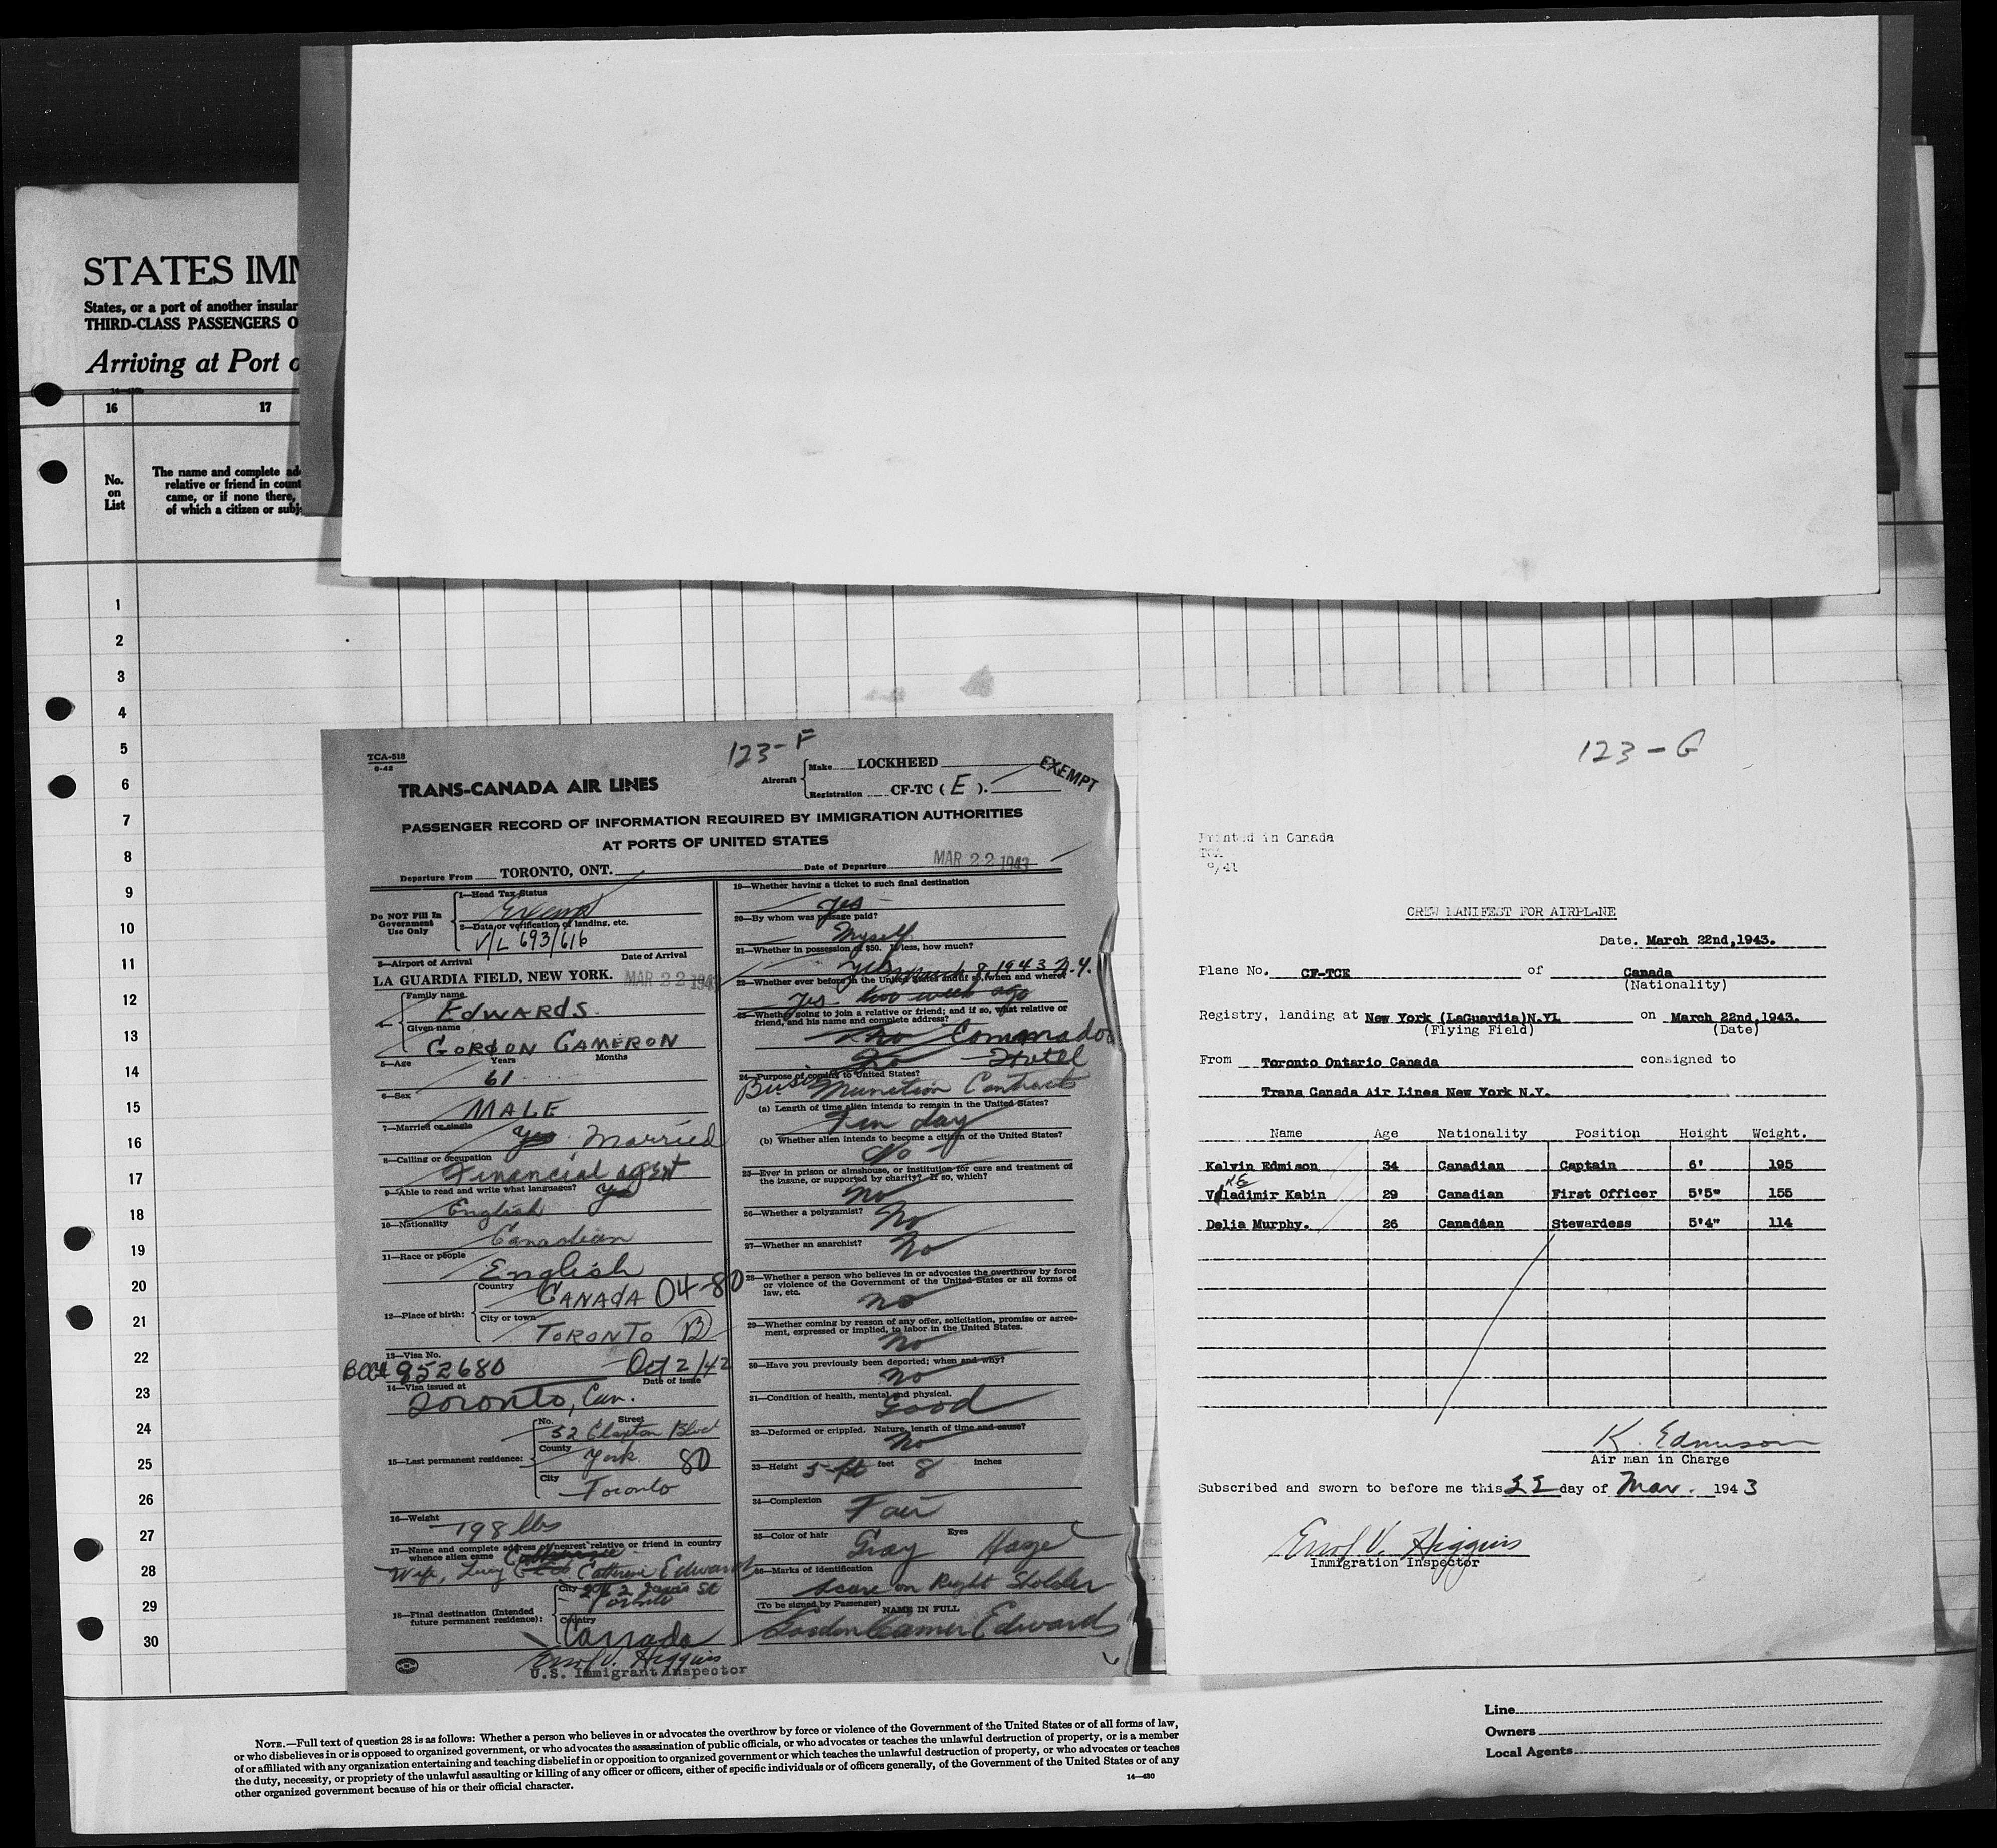 STATES IMM
States, or a port of another insular
THIRD-CLASS PASSENGERS O
Arriving at Port o
16 17
No.
on
List
The name and complete ad
relative or friend in count
came, or if none there,
of which a citizen or subj
1
2
3
4
5
6
7
8
9
10
11
12
13
14
15
16
17
18
19
20
21
22
23
24
25
26
27
28
29
30
TCA-518
6-42
123-F
TRANS-CANADA AIR LINES
Aircraft
Make LOCKHEED
Registration CF-TC ( E ).
EXEMPT
PASSENGER RECORD OF INFORMATION REQUIRED BY IMMIGRATION AUTHORITIES
AT PORTS OF UNITED STATES
Departure From TORONTO, ONT. Date of Departure MAR 22 1943
Do NOT Fill In
Government
Use Only
1—Head Tax Status
Exempt
2—Data or verification of landing, etc.
V/L 693/616
3—Airport of Arrival Date of Arrival
LA GUARDIA FIELD, NEW YORK. MAR 22 194
Family name
EDWARDS.
Given name
GORDON CAMERON
5—Age Years Months
61
6—Sex
MALE
7—Married or single
Yes Married
8—Calling or occupation
Financial agent
9—Able to read and write what languages? Yes
English
10—Nationality
Canadian
11—Race or people
English
12—Place of birth:
Country
CANADA 04-80
City or town
TORONTO B
13—Visa No.
BCC# 952680 Oct 2/42
14—Visa issued at Date of issue
Toronto, Can.
15—Last permanent residence:
No. Street
52 Claxton Blvd
County
York 80
City
Toronto
16—Weight
198 lbs
17—Name and complete address of nearest relative or friend in country
whence alien came
Wife, Lucy Catherine Edwards
18—Final destination (Intended
future permanent residence):
City
Toronto
Country
Canada
Errol V. Higgins
U.S. Immigrant Inspector
19—Whether having a ticket to such final destination
Yes
20—By whom was passage paid?
Myself
21—Whether in possession of $50. If less, how much?
Yes March 8, 1943 N.Y.
22—Whether ever before in the United States and if so, when and where?
Yes two week ago
23—Whether going to join a relative or friend; and if so, what relative or
friend, and his name and complete address?
No Commador
Hotel
24—Purpose of coming to United States?
Busi Munition Contracts
(a) Length of time alien intends to remain in the United States?
Ten day
(b) Whether alien intends to become a citizen of the United States?
No
25—Ever in prison or almshouse, or institution for care and treatment of
the insane, or supported by charity? If so, which?
No
26—Whether a polygamist? No
27—Whether an anarchist? No
28—Whether a person who believes in or advocates the overthrow by force
or violence of the Government of the United States or all forms of
law, etc.
No
29—Whether coming by reason of any offer, solicitation, promise or agree-
ment, expressed or implied, to labor in the United States.
No
30—Have you previously been deported; when and why?
No
31—Condition of health, mental and physical.
Good
32—Deformed or crippled. Nature, length of time and cause?
No
33—Height 5 ft feet 8 inches
34—Complexion
Fair
35—Color of hair Eyes
Gray Haze
36—Marks of identification
Scare on Right Sholder
(To be signed by Passenger) NAME IN FULL
Gordon Camer Edwards
123-G
Printed in Canada
TCA
9/41
CREW MANIFEST FOR AIRPLANE
Date. March 22nd,1943.
Plane No. CF-TCE of Canada
(Nationality)
Registry, landing at New York (LaGuardia)N.YL on March 22nd,1943.
(Flying Field) (Date)
From Toronto Ontario Canada consigned to
Trans Canada Air Lines New York N.Y.
Name Age Nationality Position Height Weight.
Kelvin Edmison 34 Canadian Captain 6' 195
Vladimir Kabin 29 Canadian First Officer 5'5" 155
Delia Murphy. 26 Canadian Stewardess 5'4" 114
K. Edmison
Air man in Charge
Subscribed and sworn to before me this 22 day of Mar. 1943
Errol V. Higgins
Immigration Inspector
Line
Owners
Local Agents
NOTE.—Full text of question 28 is as follows: Whether a person who believes in or advocates the overthrow by force or violence of the Government of the United States or of all forms of law,
or who disbelieves in or is opposed to organized government, or who advocates the assassination of public officials, or who advocates or teaches the unlawful destruction of property, or is a member
of or affiliated with any organization entertaining and teaching disbelief in or opposition to organized government or which teaches the unlawful destruction of property, or who advocates or teaches
the duty, necessity, or propriety of the unlawful assaulting or killing of any officer or officers, either of specific individuals or of officers generally, of the Government of the United States or of any
other organized government because of his or their official character.
14—430